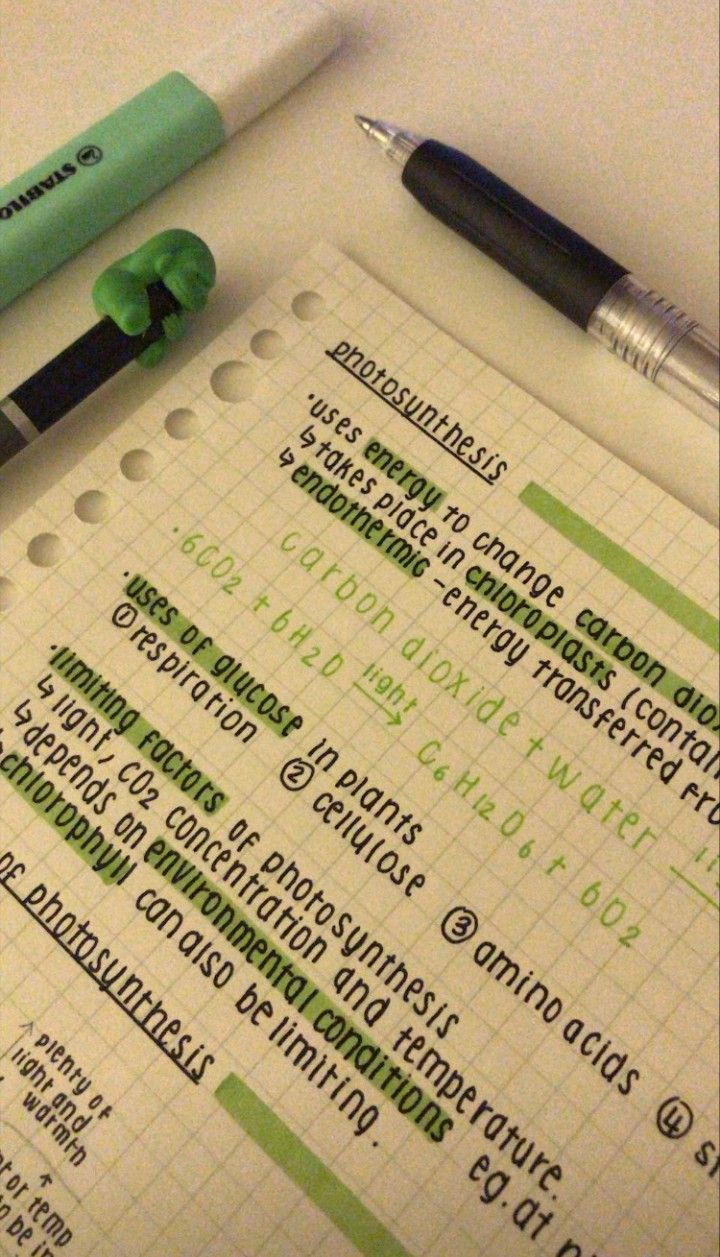 STABILO
photosynthesis
· uses energy to change carbon
↳ takes place in chloroplasts
↳ endothermic - energy transferred
carbon dioxide + water
· 6CO2 + 6H2O light → C6H12O6 + 6O2
· uses of glucose in plants
① respiration ② cellulose ③ amino acids ④
· limiting factors of photosynthesis
↳ light, CO2 concentration and temperature.
↳ depends on environmental conditions eg. at
↳ chlorophyll can also be limiting.
of photosynthesis
plenty of
light and
warmth
or temp
to be